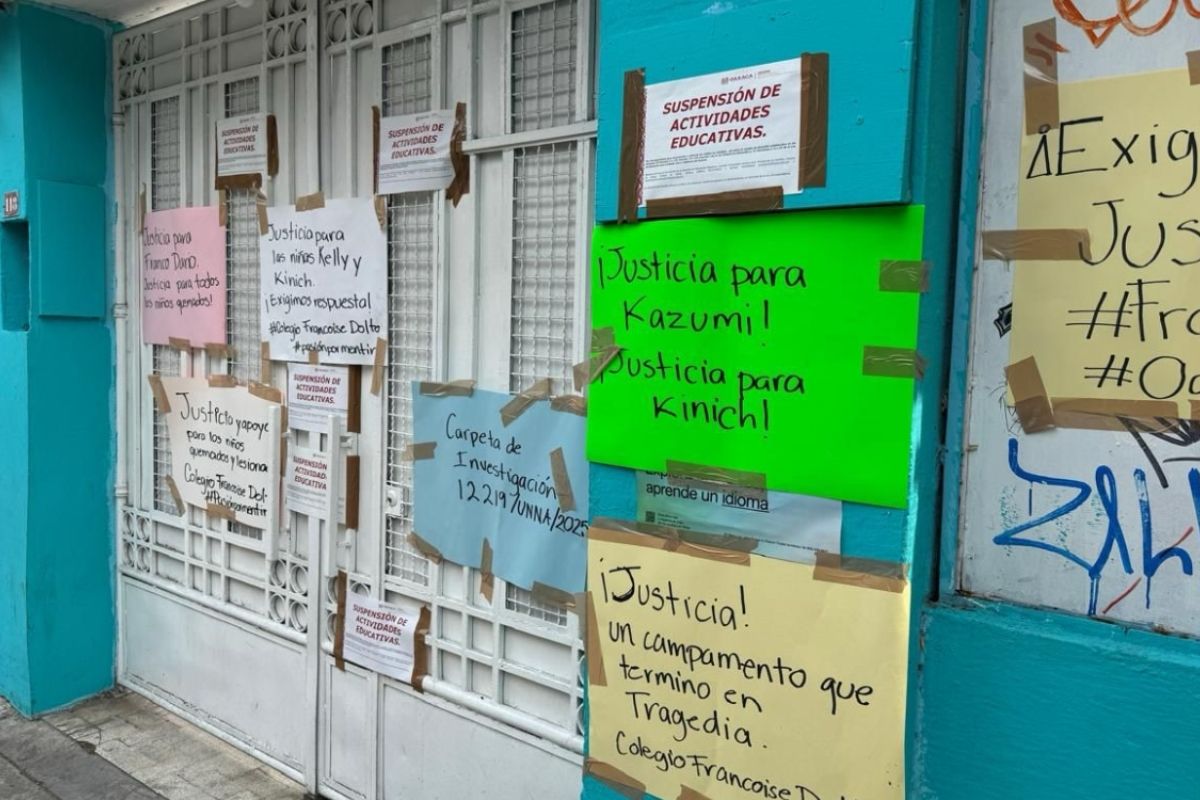 118
SUSPENSIÓN DE
ACTIVIDADES
EDUCATIVAS.
SUSPENSIÓN DE
ACTIVIDADES
EDUCATIVAS.
OAXACA
SUSPENSIÓN DE
ACTIVIDADES
EDUCATIVAS.
Justicia para
Franco Dano.
Justicia para todos
los niños quemados!
Justicia para
las niñas Kelly y
Kinich.
¡Exigimos respuestal
#Colegio Francoise Dolto
#pasiónpormentir
Justicia y apoyo
para los niños
quemados y lesiona
Colegio Francoise Dol-
SUSPENSIÓN DE
ACTIVIDADES
EDUCATIVAS.
SUSPENSIÓN DE
ACTIVIDAD
EDUCATIVA
SUSPENSIÓN DE
ACTIVIDADES
EDUCATIVAS.
Carpeta de
Investigación
12219/UNNA/2025
¡Justicia para
Kazumi!
¡Justicia para
Kinich!
aprende un idioma
¡Justicia!
un campamento que
termino en
Tragedia.
Colegio Francoise
¡Exig
Jus
#Fra
#Oa